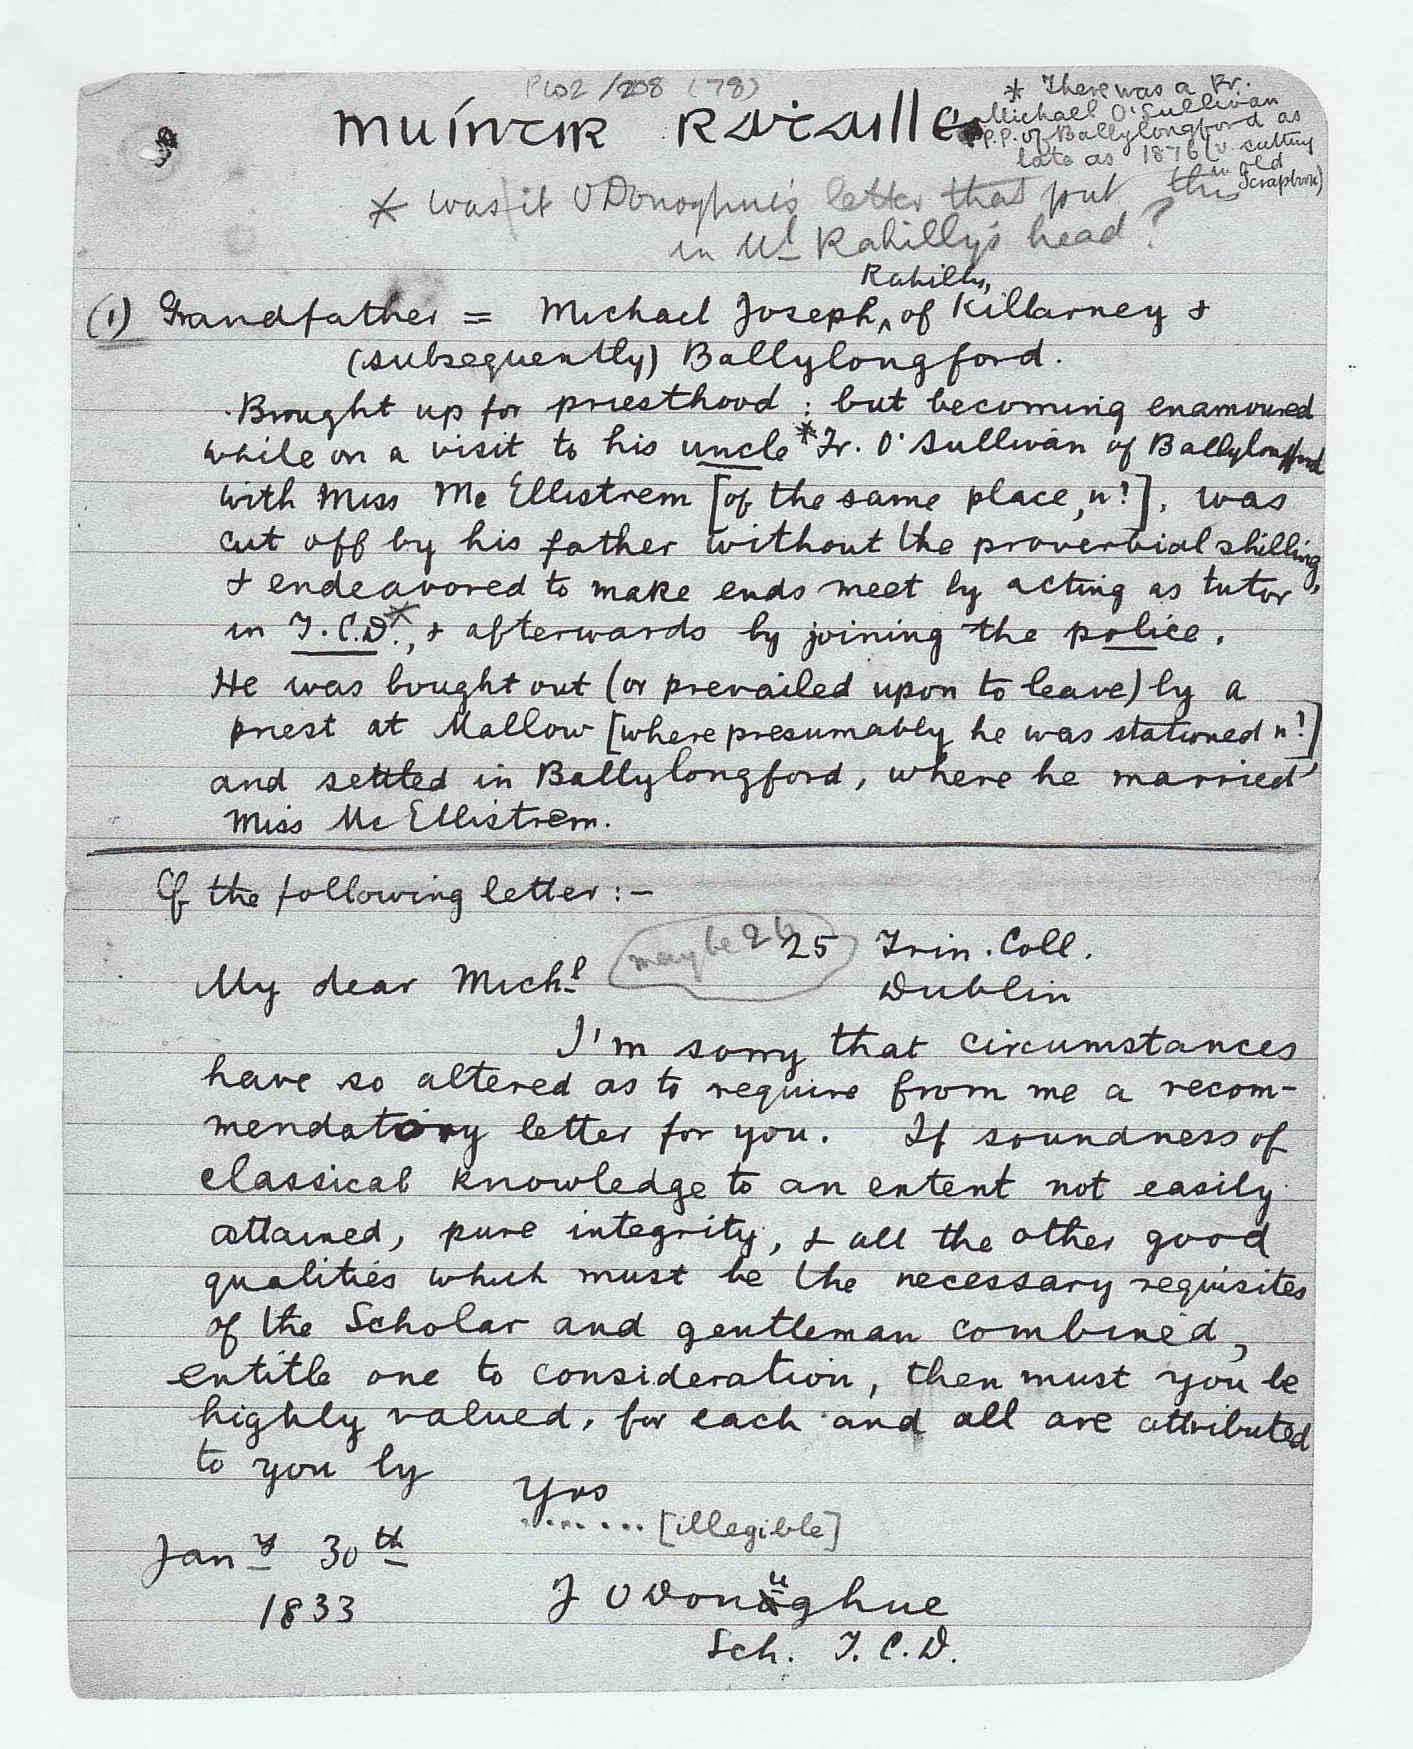 P102/208 (78)
muíntir Rathaille
* There was a Fr.
Michael O'Sullivan
P.P. of Ballylongford as
late as 1876 (v. cutting
in old
Scrapbook)
* was it O Donoghue's letter that put this
in Ml Rahilly's head?
Rahilly,
(1) Grandfather = Michael Joseph ^ of Killarney &
(subsequently) Ballylongford.
Brought up for priesthood : but becoming enamoured
while on a visit to his uncle * Fr. O'Sullivan of Ballylongford
with Miss Mc Ellistrem [of the same place, n!], was
cut off by his father without the proverbial shilling,
& endeavored to make ends meet by acting as tutor
in T.C.D.*, & afterwards by joining the police.
He was bought out (or prevailed upon to leave) by a
priest at Mallow [where presumably he was stationed n!]
and settled in Ballylongford, where he married
Miss Mc Ellistrem.
Cf the following letter :-
maybe 26 25 Trin. Coll.
My dear Michl Dublin
I'm sorry that circumstances
have so altered as to require from me a recom-
mendatory letter for you. If soundness of
classical knowledge to an extent not easily
attained, pure integrity, & all the other good
qualities which must be the necessary requisites
of the Scholar and gentleman combined,
entitle one to consideration, then must you be
highly valued, for each and all are attributed
to you by
Yrs
........ [illegible]
Jany 30th
1833
J O Donoughue
Sch. T.C.D.